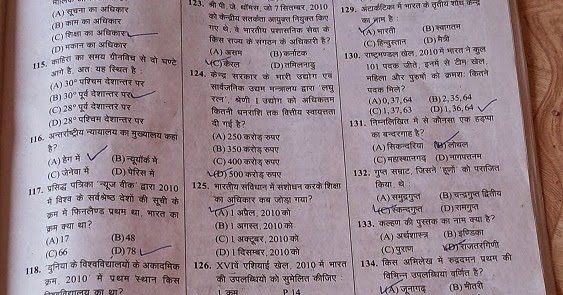 (A) सूचना का अधिकार
(B) काम का अधिकार
(C) शिक्षा का अधिकार
(D) मकान का अधिकार
115. काहिरा का समय ग्रीनविच से दो घण्टे
आगे है, अतः यह स्थित है :
(A) 30° पश्चिम देशान्तर पर
(B) 30° पूर्व देशान्तर पर
(C) 28° पूर्व देशान्तर पर
(D) 28° पश्चिम देशान्तर पर
116. अन्तर्राष्ट्रीय न्यायालय का मुख्यालय कहा
है?
(A) हेग में (B) न्यूयॉर्क में
(C) जेनेवा में (D) पेरिस में
117. प्रसिद्ध पत्रिका 'न्यूज वीक' द्वारा 2010
में विश्व के सर्वश्रेष्ठ देशों की सूची के
क्रम में फिनलैण्ड प्रथम था, भारत का
क्रम क्या था?
(A) 17 (B) 48
(C) 66 (D) 78
118. 'दुनिया के विश्वविद्यालयों के अकादमिक
क्रम, 2010' में प्रथम स्थान किस
विश्वविद्यालय का था?
123. श्री पी. जे. थॉमस, जो 7 सितम्बर, 2010
को केन्द्रीय सतर्कता आयुक्त नियुक्त किए
गए थे, वे भारतीय प्रशासनिक सेवा के
किस राज्य के संगठन के अधिकारी है?
(A) असम (B) कर्नाटक
(C) केरल (D) तमिलनाडु
124. केन्द्र सरकार के भारी उद्योग एवं
सार्वजनिक उद्यम मन्त्रालय द्वारा लघु
रत्न, श्रेणी I उद्योग को अधिकतम
कितनी धनराशि तक वित्तीय स्वायत्तता
दी गई है?
(A) 250 करोड़ रुपए
(B) 350 करोड़ रुपए
(C) 400 करोड़ रुपए
(D) 500 करोड़ रुपए
125. भारतीय संविधान में संशोधन करके शिक्षा
का अधिकार कब जोड़ा गया?
(A) 1 अप्रैल, 2010 को
(B) 1 अगस्त, 2010 को
(C) 1 अक्टूबर, 2010 को
(D) 1 दिसम्बर, 2010 को
126. XVIवें एशियाई खेल, 2010 में भारत
की उपलब्धियों को सुमेलित कीजिए :
129. अंटार्कटिका में भारत के तृतीय शोध केन्द्र
का नाम है :
(A) भारती (B) स्वागतम
(C) हिन्दुस्तान (D) मैत्री
130. राष्ट्रमण्डल खेल, 2010 में भारत ने कुल
101 पदक जीते। इनमें से टीम खेल,
महिला और पुरुषों को क्रमशः कितने
पदक मिले?
(A) 0, 37, 64 (B) 2, 35, 64
(C) 1, 37, 63 (D) 1, 36, 64
131. निम्नलिखित में से कौनसा एक हड़प्पा
का बन्दरगाह है?
(A) सिकन्दरिया (B) लोथल
(C) महास्थानगढ़ (D) नागपत्तनम
132. गुप्त सम्राट जिसने 'हूणों' को पराजित
किया था :
(A) समुद्रगुप्त (B) चन्द्रगुप्त द्वितीय
(C) स्कन्दगुप्त (D) रामगुप्त
133. कल्हण की पुस्तक का नाम क्या है?
(A) अर्थशास्त्र (B) इण्डिका
(C) पुराण (D) राजतरंगिणी
134. किस अभिलेख में रुद्रदमन प्रथम की
विभिन्न उपलब्धियां वर्णित है?
(A) जूनागढ़ (B) भीतरी